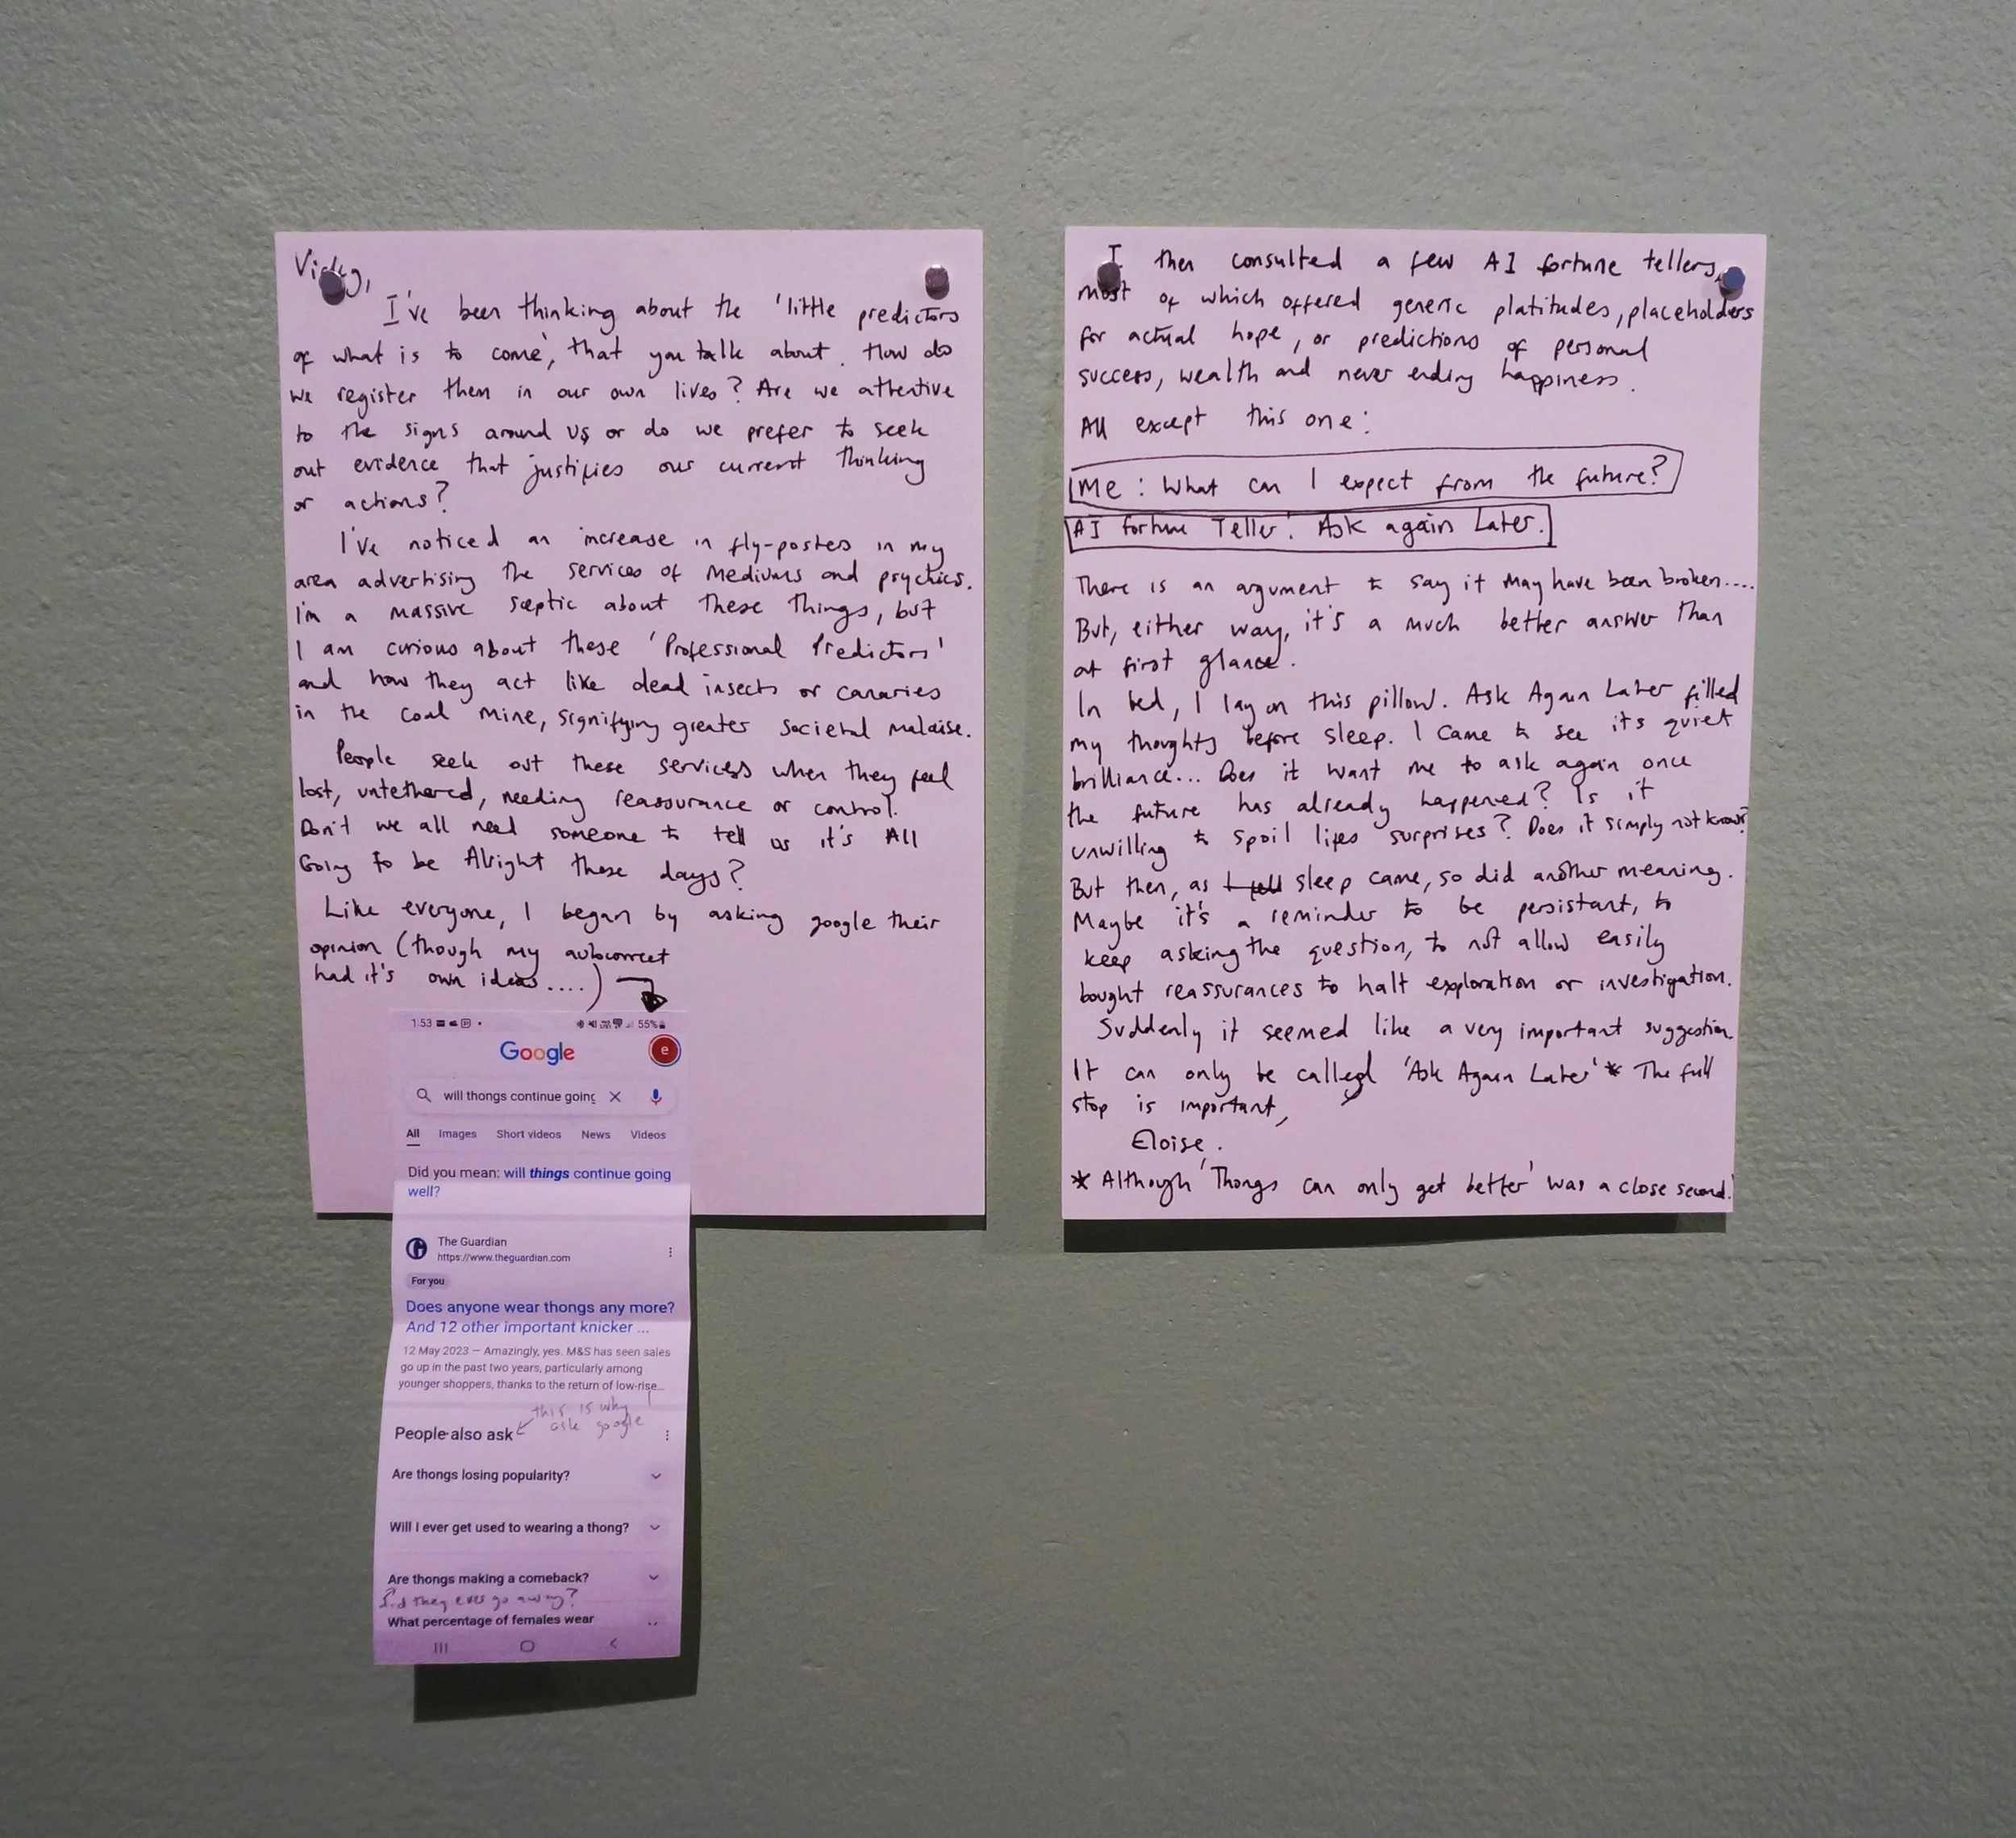 Vicky,
I've been thinking about the 'little predictors
of what is to come', that you talk about. How do
we register them in our own lives? Are we attentive
to the signs around us or do we prefer to seek
out evidence that justifies our current thinking
or actions?
I've noticed an increase in fly-posters in my
area advertising the services of Mediums and psychics.
I'm a massive sceptic about these things, but
I am curious about these 'Professional Predictors'
and how they act like dead insects or canaries
in the coal mine, signifying greater societal malaise.
People seek out these services when they feel
lost, untethered, needing reassurance or control.
Don't we all need someone to tell us it's All
Going to be Alright these days?
Like everyone, I began by asking google their
opinion (though my autocorrect
had it's own ideas....)
1:53 55%
Google
e
will thongs continue going
All Images Short videos News Videos
Did you mean: will things continue going
well?
The Guardian
https://www.theguardian.com
For you
Does anyone wear thongs any more?
And 12 other important knicker ...
12 May 2023 — Amazingly, yes. M&S has seen sales
go up in the past two years, particularly among
younger shoppers, thanks to the return of low-rise...
this is why I
ask google
People also ask
Are thongs losing popularity?
Will I ever get used to wearing a thong?
Are thongs making a comeback?
Did they ever go away?
What percentage of females wear
I then consulted a few AI fortune tellers,
most of which offered generic platitudes, placeholders
for actual hope, or predictions of personal
success, wealth and never ending happiness.
All except this one:
Me: What can I expect from the future?
AI Fortune Teller: Ask again Later.
There is an argument to say it may have been broken....
But, either way, it's a much better answer than
at first glance.
In bed, I lay on this pillow. Ask Again Later filled
my thoughts before sleep. I came to see it's quiet
brilliance... Does it want me to ask again once
the future has already happened? Is it
unwilling to spoil lifes surprises? Does it simply not know?
But then, as I fell sleep came, so did another meaning.
Maybe it's a reminder to be persistant, to
keep asking the question, to not allow easily
bought reassurances to halt exploration or investigation.
Suddenly it seemed like a very important suggestion.
It can only be called 'Ask Again Later.'* The full
stop is important,
Eloise.
* Although 'Thongs can only get better' was a close second!